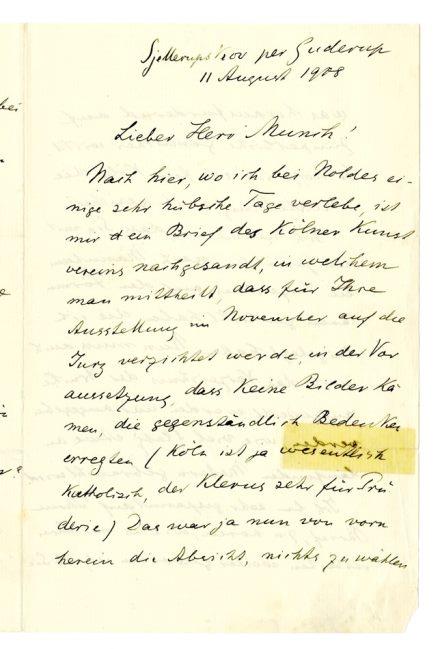 Sjellerupskov per Guderup
11 August 1908
Lieber Herr Munch!
Nach hier, wo ich bei Noldes ei-
nige sehr hübsche Tage verlebe, ist
mir ein Brief des Kölner Kunst
vereins nachgesandt, in welchem
man mittheilt, dass für Ihre
Ausstellung im November auf die
Jury verzichtet werde, in der Vor
aussetzung, dass keine Bilder kä-
men, die gegenständlich Bedenken
erregten (Köln ist ja wesentlich
katholisch, der Klerus sehr für Prü
derie) Das war ja nun von vorn
herein die Absicht, nichts zu wählen